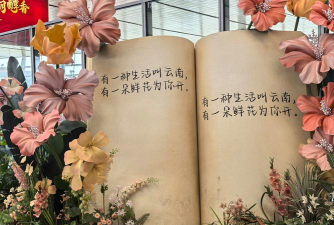 有一种生活叫云南,
有一朵鲜花为你开.
有一种生活叫云南,
有一朵鲜花为你开.